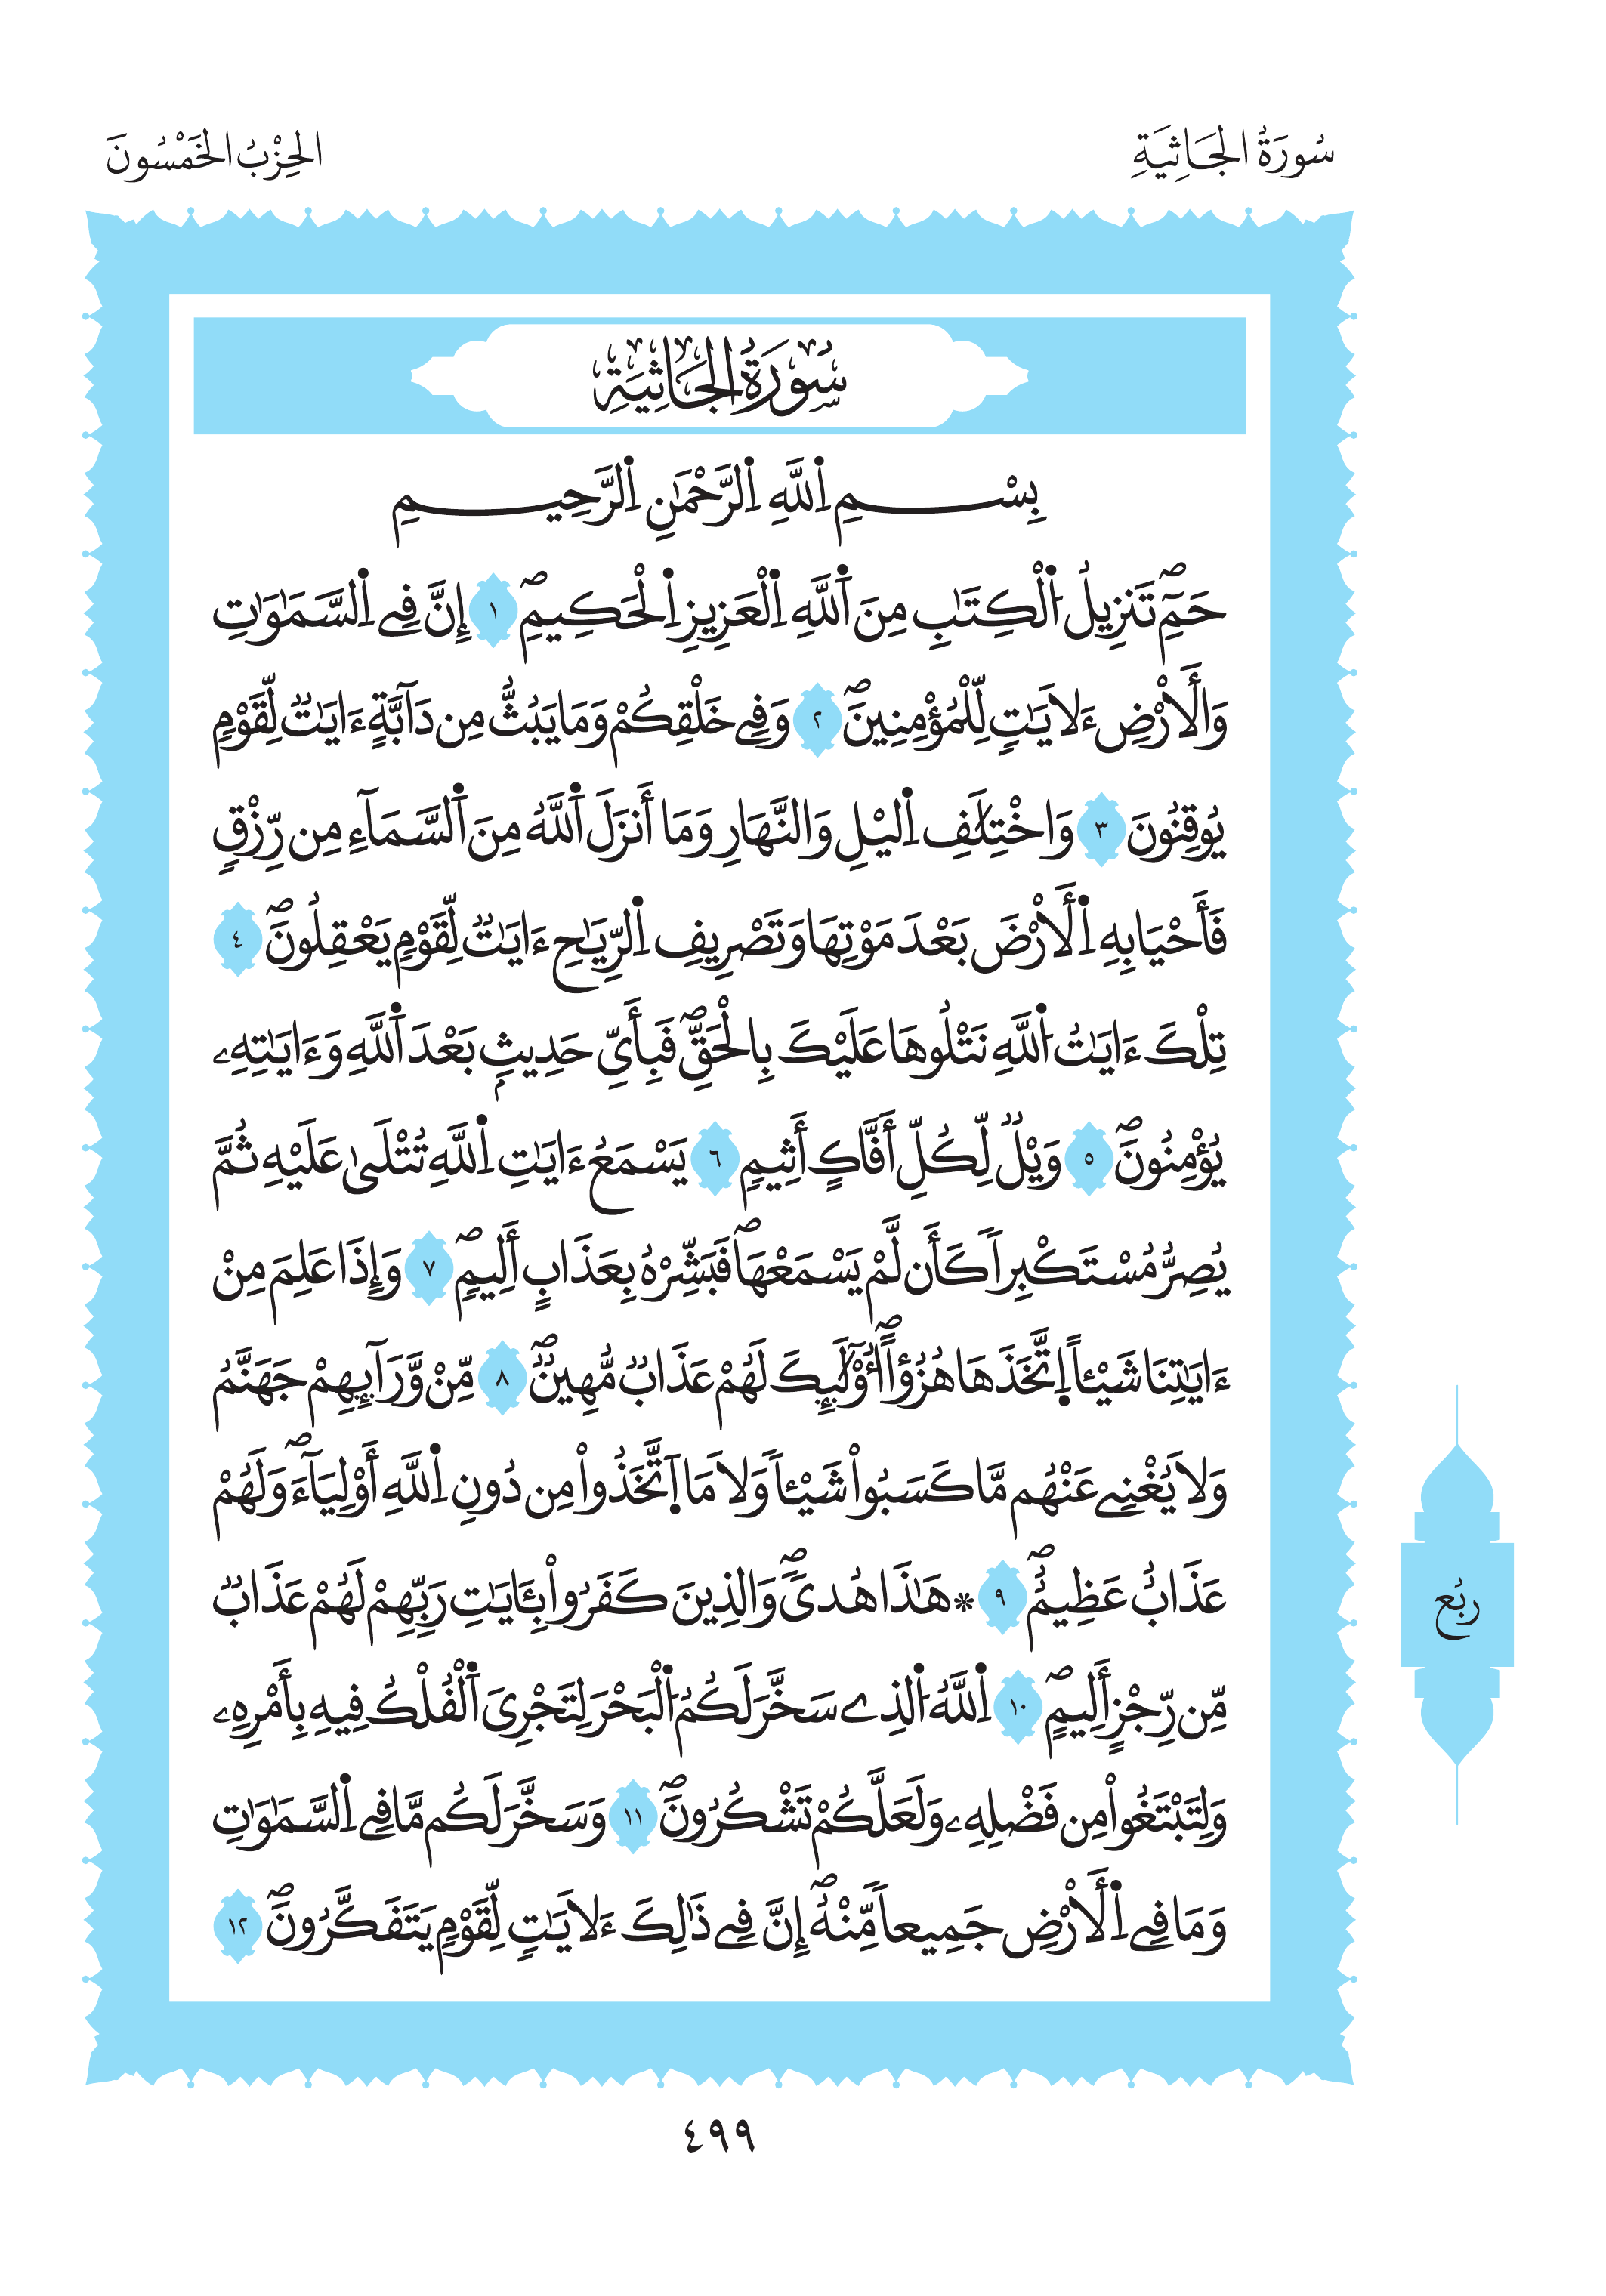 سُورَةُ الجَاثِيَةِ
الحِزْبُ الخَمْسُونَ
سُورَةُ الجَاثِيَةِ
بِسْمِ اِ۬للَّهِ اِ۬لرَّحْمَٰنِ اِ۬لرَّحِيمِ
حَمِٓۖ تَنزِيلُ اُ۬لْكِتَٰبِ مِنَ اَ۬للَّهِ اِ۬لْعَزِيزِ اِ۬لْحَكِيمِۖ ١ إِنَّ فِے اِ۬لسَّمَٰوَٰتِ
وَالَارْضِ ءَلَايَٰتٖ لِّلْمُؤْمِنِينَۖ ٢ وَفِے خَلْقِكُمْ وَمَا يَبُثُّ مِن دَآبَّةٍ ءَايَٰتٞ لِّقَوْمٖ
يُوقِنُونَ ٣ وَاخْتِلَٰفِ اِ۬ليْلِ وَالنَّهَارِ وَمَا أَنزَلَ اَ۬للَّهُ مِنَ اَ۬لسَّمَآءِ مِن رِّزْقٖ
فَأَحْيَا بِهِ اِ۬لَارْضَ بَعْدَ مَوْتِهَا وَتَصْرِيفِ اِ۬لرِّيَٰحِ ءَايَٰتٞ لِّقَوْمٖ يَعْقِلُونَۖ ٤
تِلْكَ ءَايَٰتُ اُ۬للَّهِ نَتْلُوهَا عَلَيْكَ بِالْحَقِّۖ فَبِأَيِّ حَدِيثِۢ بَعْدَ اَ۬للَّهِ وَءَايَٰتِهِۦ
يُؤْمِنُونَۖ ٥ وَيْلٞ لِّكُلِّ أَفَّاكٍ أَثِيمٖ ٦ يَسْمَعُ ءَايَٰتِ اِ۬للَّهِ تُتْلَىٰ عَلَيْهِ ثُمَّ
يُصِرُّ مُسْتَكْبِراٗ كَأَن لَّمْ يَسْمَعْهَاۖ فَبَشِّرْهُ بِعَذَابٍ أَلِيمٖۖ ٧ وَإِذَا عَلِمَ مِنْ
ءَايَٰتِنَا شَيْـٔاً اِ۪تَّخَذَهَا هُزُؤاًۖ ا۟وْلَٰٓئِكَ لَهُمْ عَذَابٞ مُّهِينٞۖ ٨ مِّنْ وَّرَآئِهِمْ جَهَنَّمُ
وَلَا يُغْنِے عَنْهُم مَّا كَسَبُواْ شَيْـٔاٗ وَلَا مَا اَ۪تَّخَذُواْ مِن دُونِ اِ۬للَّهِ أَوْلِيَآءَۖ وَلَهُمْ
عَذَابٌ عَظِيمٌۖ ٩ * هَٰذَا هُدىٗۖ وَالذِينَ كَفَرُواْ بِـَٔايَٰتِ رَبِّهِمْ لَهُمْ عَذَابٞ
مِّن رِّجْزٍ أَلِيمٖۖ ١٠ اِ۬للَّهُ اُ۬لذِے سَخَّرَ لَكُمُ اُ۬لْبَحْرَ لِتَجْرِيَ اَ۬لْفُلْكُ فِيهِ بِأَمْرِهِۦ
وَلِتَبْتَغُواْ مِن فَضْلِهِۦ وَلَعَلَّكُمْ تَشْكُرُونَۖ ١١ وَسَخَّرَ لَكُم مَّا فِے اِ۬لسَّمَٰوَٰتِ
وَمَا فِے اِ۬لَارْضِ جَمِيعاٗ مِّنْهُۖ إِنَّ فِے ذَٰلِكَ ءَلَايَٰتٖ لِّقَوْمٖ يَتَفَكَّرُونَۖ ١٢
ربُع
٤٩٩